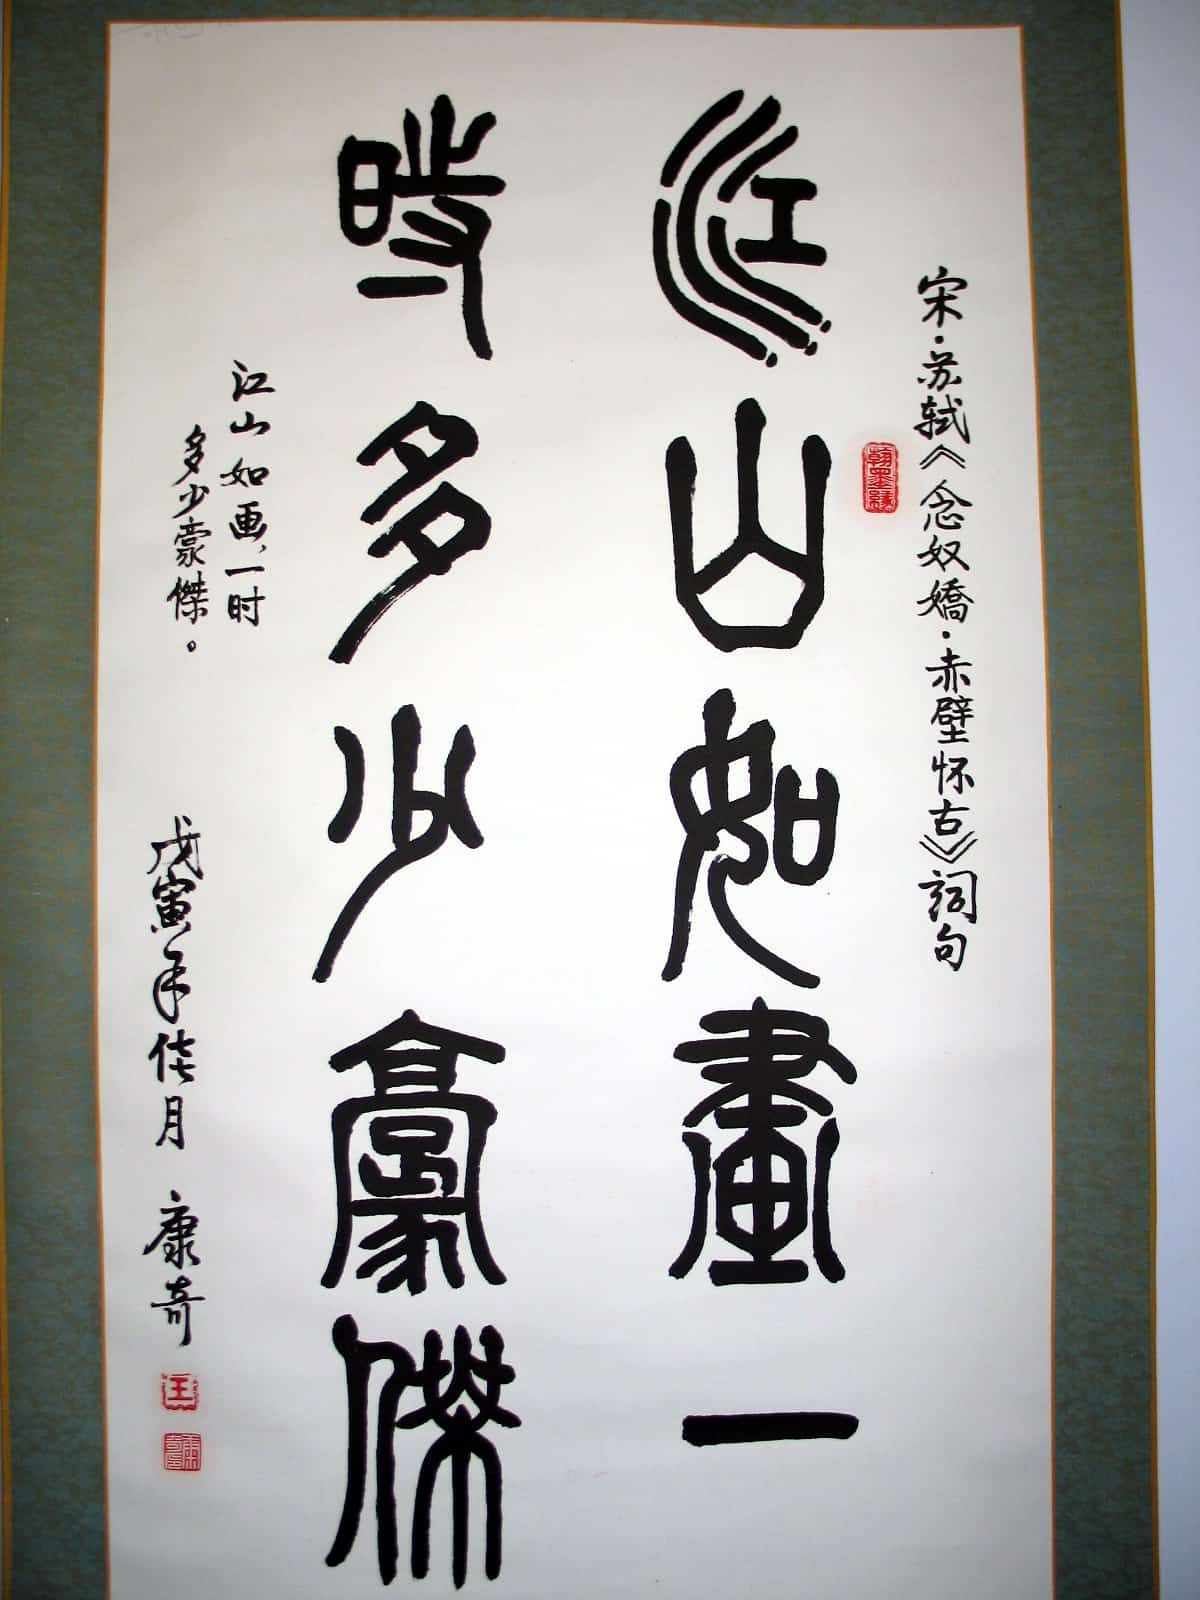 宋·苏轼《念奴嬌·赤壁怀古》詞句
翰墨緣
江山如畫一
時多少豪傑
江山如画，一时
多少豪傑。
戊寅年佳月 康奇
王
康奇